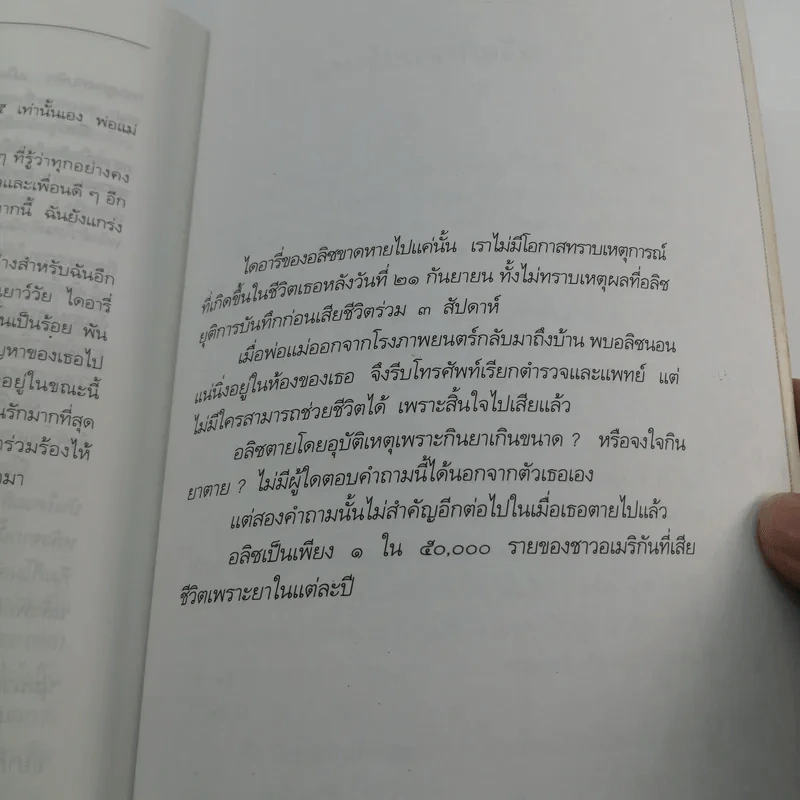 เท่านั้นเอง พ่อแม่
ๆ ที่รู้ว่าทุกอย่างคง
และเพื่อนดี ๆ อีก
ากนี้ ฉันยังแกร่ง
างสำหรับฉันอีก
เยาว์วัย ไดอารี่
ั้นเป็นร้อย พัน
ญหาของเธอไป
อยู่ในขณะนี้
นรักมากที่สุด
าร่วมร้องไห้
มา
ไดอารี่ของอลิซขาดหายไปแค่นั้น เราไม่มีโอกาสทราบเหตุการณ์
ที่เกิดขึ้นในชีวิตเธอหลังวันที่ ๒๑ กันยายน ทั้งไม่ทราบเหตุผลที่อลิซ
ยุติการบันทึกก่อนเสียชีวิตร่วม ๓ สัปดาห์
เมื่อพ่อแม่ออกจากโรงภาพยนตร์กลับมาถึงบ้าน พบอลิซนอน
แน่นิ่งอยู่ในห้องของเธอ จึงรีบโทรศัพท์เรียกตำรวจและแพทย์ แต่
ไม่มีใครสามารถช่วยชีวิตได้ เพราะสิ้นใจไปเสียแล้ว
อลิซตายโดยอุบัติเหตุเพราะกินยาเกินขนาด ? หรือจงใจกิน
ยาตาย ? ไม่มีผู้ใดตอบคำถามนี้ได้นอกจากตัวเธอเอง
แต่สองคำถามนั้นไม่สำคัญอีกต่อไปในเมื่อเธอตายไปแล้ว
อลิซเป็นเพียง ๑ ใน ๕๐,๐๐๐ รายของชาวอเมริกันที่เสีย
ชีวิตเพราะยาในแต่ละปี